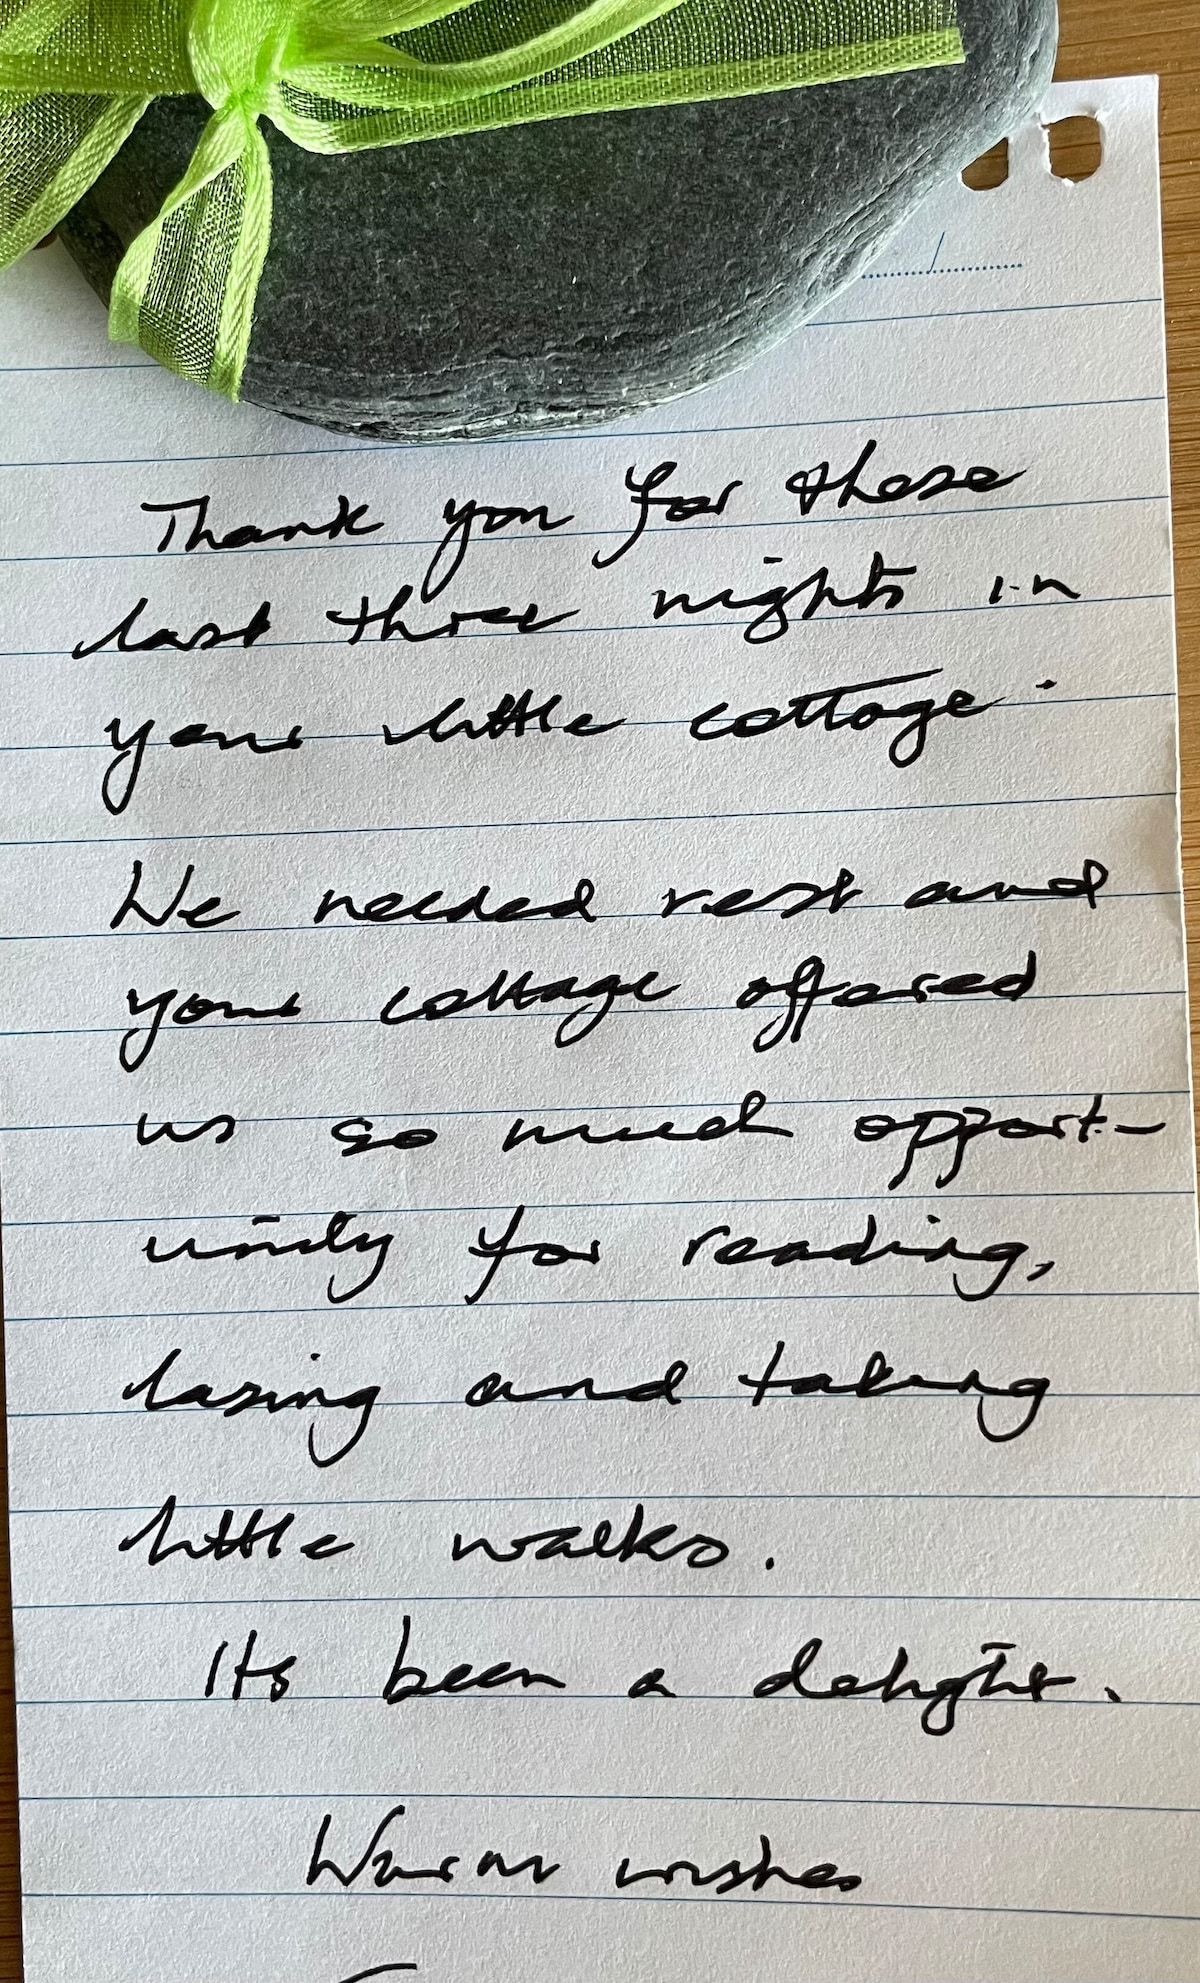 Thank you for these
last three nights in
your little cottage.
We needed rest and
your cottage offered
us so much opport-
unity for reading,
lazing and taking
little walks.
Its been a delight.
Warm wishes